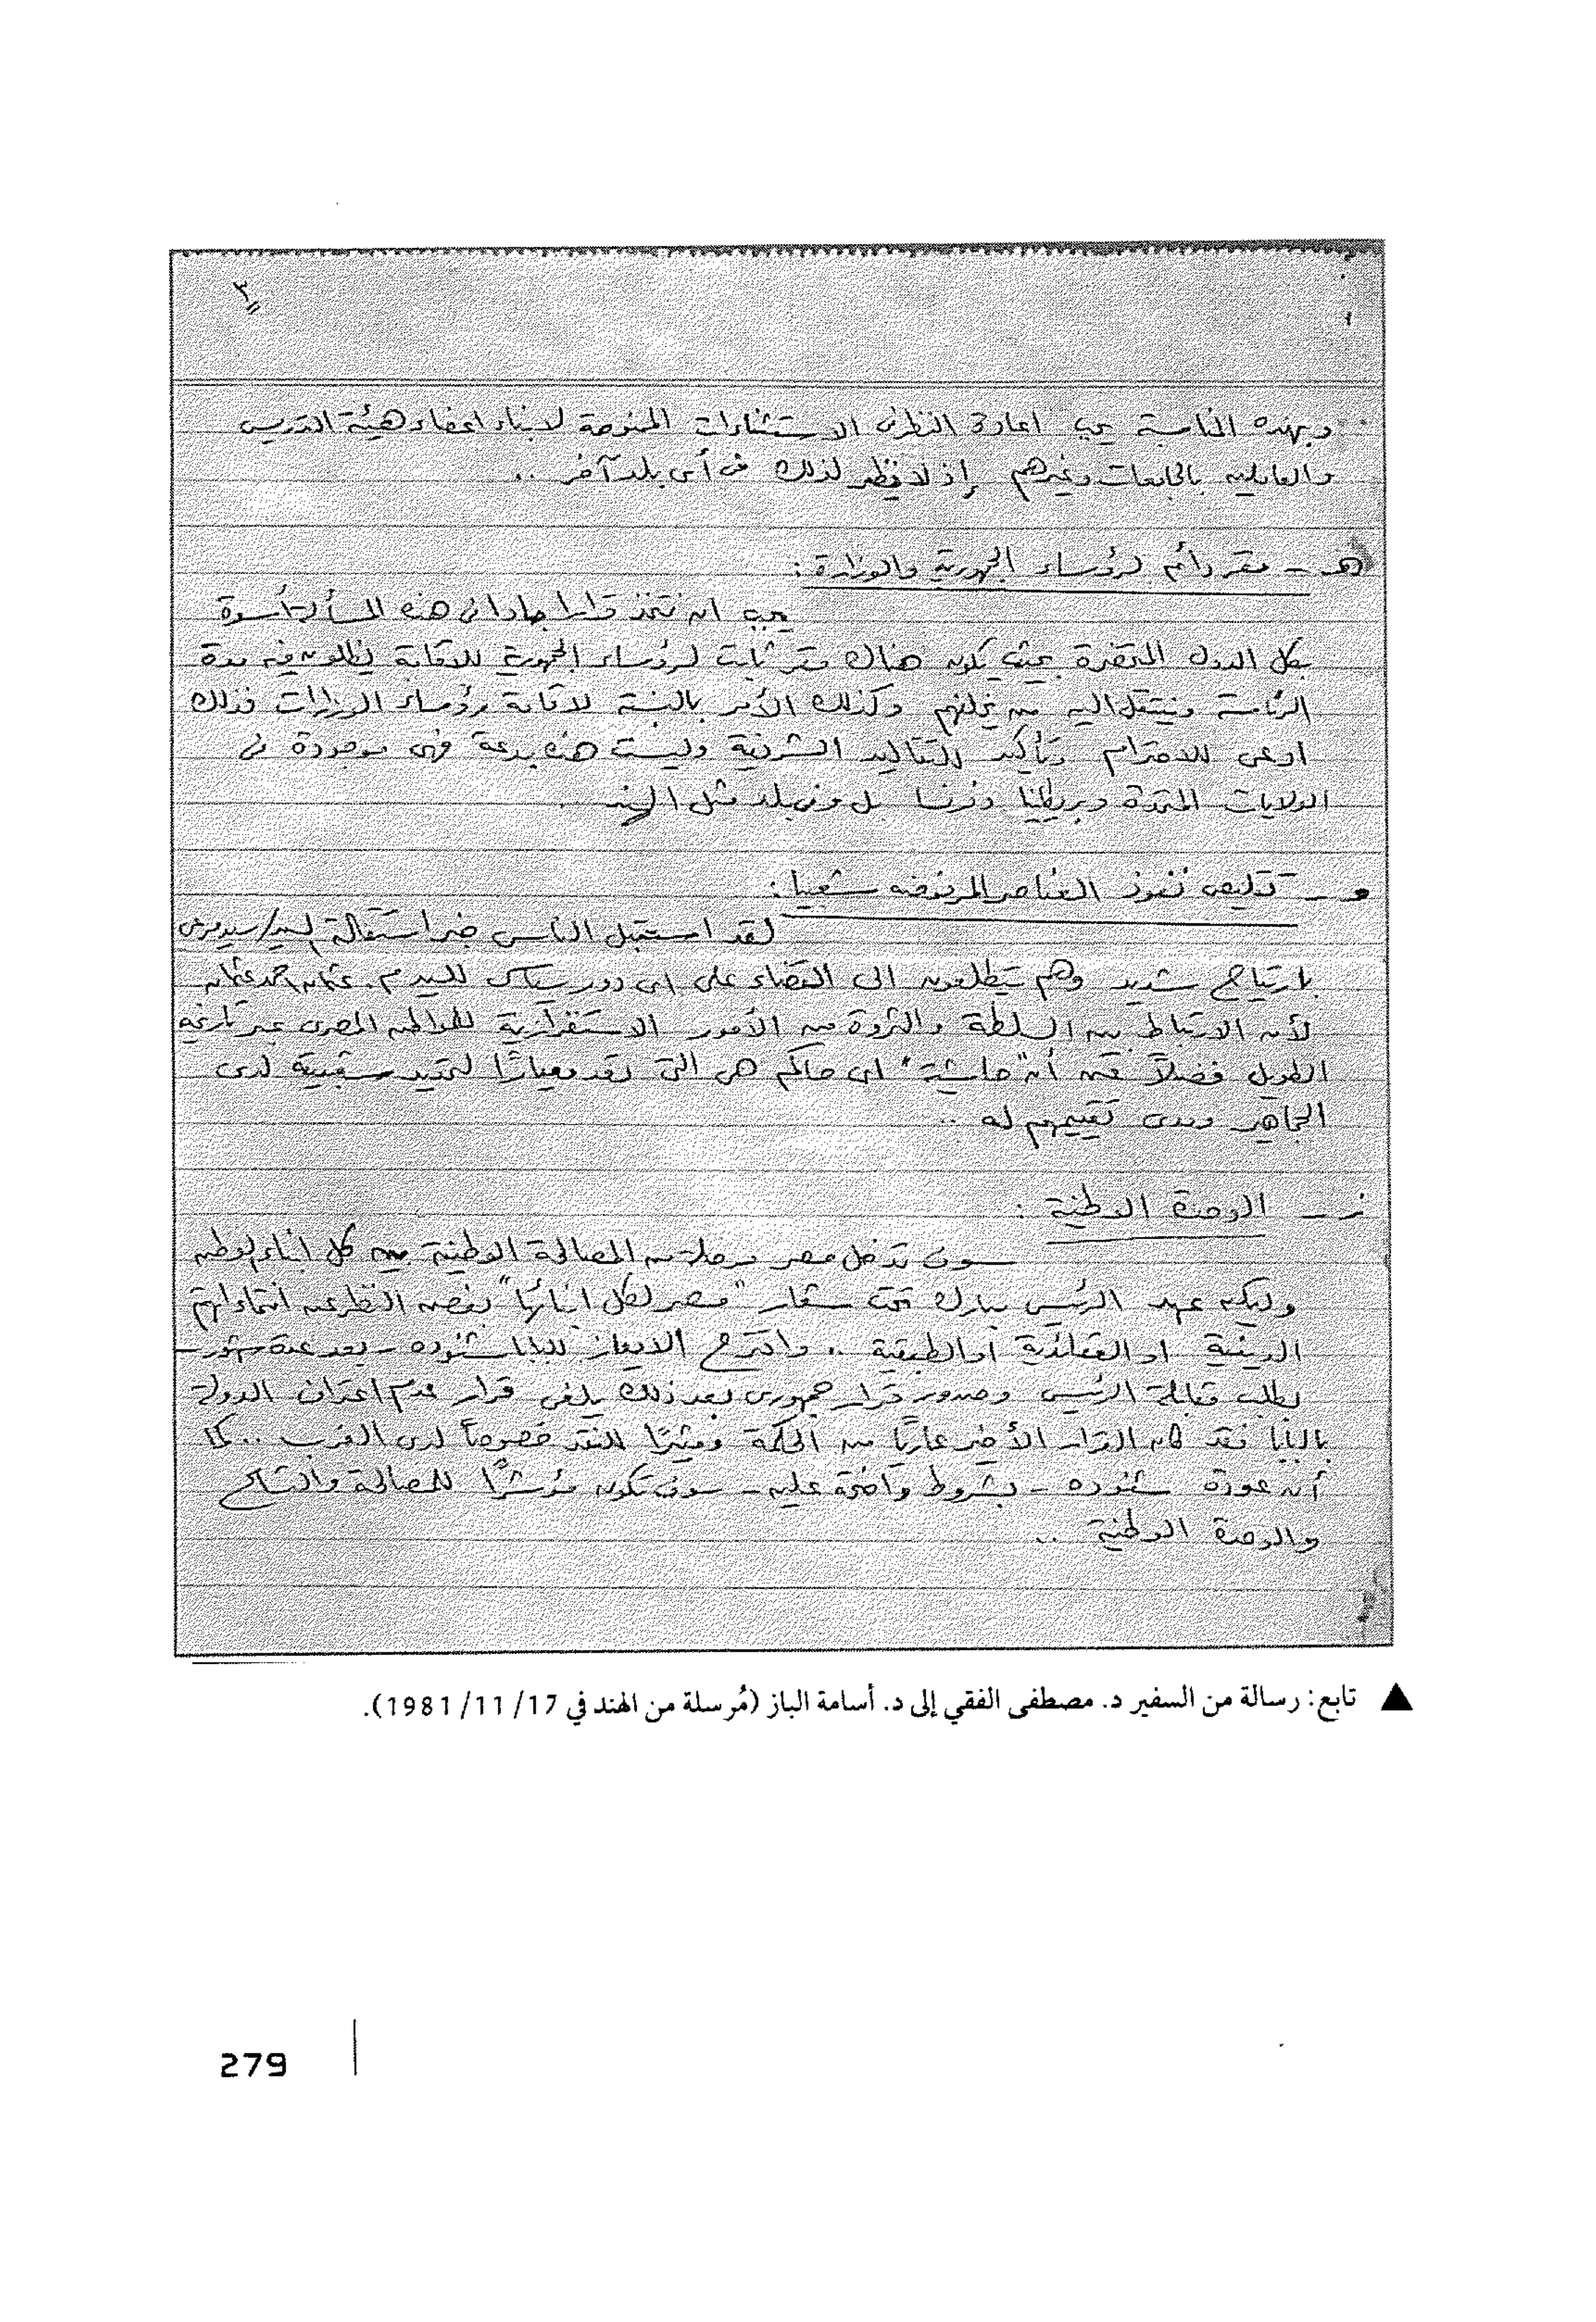 ٣
وبهذه المناسبة يجب اعادة النظر فى الاستثناءات الممنوحة لابناء اعضاء هيئة التدريس
والعاملين بالجامعات وغيرهم إذ لا نظير لذلك فى أى بلد آخر ..
هـ - مقر دائم لرؤساء الجمهورية والوزارة :
يجب ان نتخذ قرارا جادا فى هذه المسألة أسوة
بكل الدول المتحضرة بحيث يكون هناك مقر ثابت لرؤساء الجمهورية للاقامة يظلون فيه مدة
الرئاسة وينتقل اليه من يخلفهم وكذلك الأمر بالنسبة لاقامة رؤساء الوزارات فذلك
ادعى للاحترام وتأكيد للتقاليد الشرفية وليست هذه بدعة فهى موجودة فى
الولايات المتحدة وبريطانيا وفرنسا بل وفى بلد مثل الهند .
و - تقليص نفوذ العناصر المرفوضه شعبيا :
لقد استقبل الناس خبر استقالة السيد/ سيد مرعى
بارتياح شديد وهم يتطلعون الى القضاء على اى دور سياسى للسيد م. عثمان احمد عثمان
لأن الارتباط بين السلطة والثروة من الأمور الاستفزازية للمواطن المصرى عبر تاريخه
الطويل فضلاً عن أن "حاشية" اى حاكم هى التى تعد معيارًا لتحديد شعبيته لدى
الجماهير ومدى تقييمهم له ..
ز - الوحدة الوطنية :
سوف تدخل مصر مرحلة من المصالحة الوطنية بين كل ابناء الوطن
وليكن عهد الرئيس مبارك تحت شعار "مصر لكل ابنائها" بغض النظر عن انتماءاتهم
الدينية او العقائدية او الطبقية .. واقترح الايعاز للبابا شنوده - بعد عدة شهور -
بطلب مقابلة الرئيس وصدور قرار جمهورى بعد ذلك يلغى قرار عدم اعتراف الدولة
بالبابا فقد كان القرار الأخير عاريًا من الحكمة ومثيرًا للنقد خصوصاً لدى الغرب .. كما
أن عودة شنوده - بشروط واضحة عليه - سوف تكون مؤشرًا للمصالحة والتسامح
والوحدة الوطنية ..
▲ تابع: رسالة من السفير د. مصطفى الفقي إلى د. أسامة الباز (مُرسلة من الهند في 17/ 11/ 1981).
279